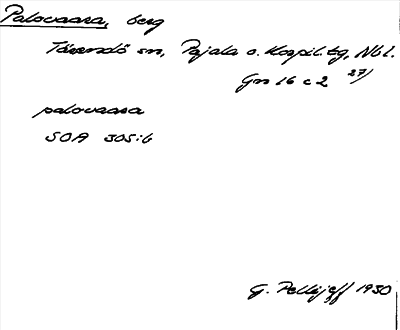 Palovaara, berg
Tärendö sn, Pajala o. Korpil. tg, Nbl.
Gn 16 c 2 27)
palovaara
SOA 305:6
G. Pellijeff 1980